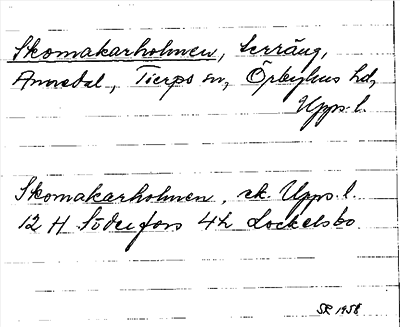 Skomakarholmen, terräng,
Annedal, Tierps sn, Örbyhus hd,
Upps. l.
Skomakarholmen, ek. Upps. l.
12 H Söderfors 4h Lockelsbo
SR 1958